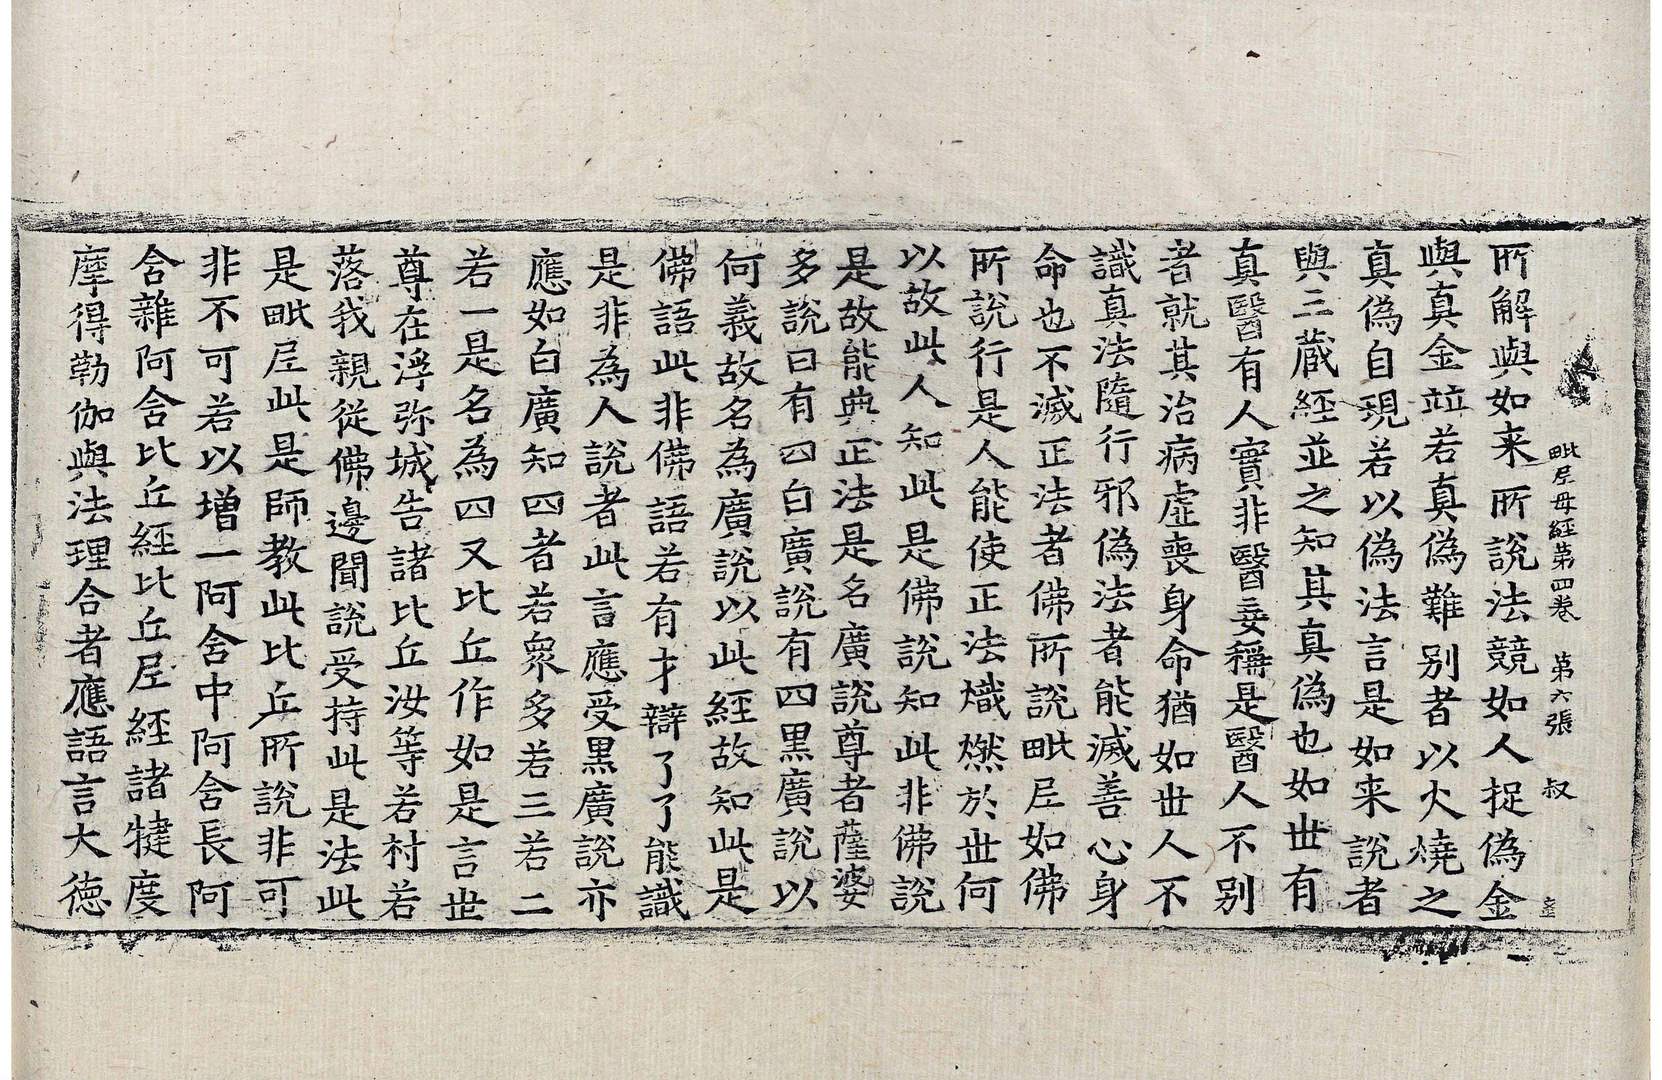 毗尼母經第四卷 第六張 叔
所解與如来所說法競如人捉偽金
與真金竝若真偽難別者以火燒之
真偽自現若以偽法言是如来說者
與三蔵經並之知其真偽也如世有
真醫有人實非醫妄稱是醫人不別
者就其治病虛喪身命猶如世人不
識真法隨行邪偽法者能滅善心身
命也不滅正法者佛所說毗尼如佛
所說行是人能使正法熾燃於世何
以故此人知此是佛說知此非佛說
是故能典正法是名廣說尊者薩婆
多說曰有四白廣說有四黒廣說以
何義故名為廣說以此經故知此是
佛語此非佛語若有才辯了了能識
是非為人說者此言應受黒廣說亦
應如白廣知四者若衆多若三若二
若一是名為四又比丘作如是言世
尊在浮弥城告諸比丘汝等若村若
落我親從佛邊聞說受持此是法此
是毗尼此是師教此比丘所說非可
非不可若以增一阿含中阿含長阿
含雜阿含比丘經比丘尼經諸犍度
摩得勒伽與法理合者應語言大德